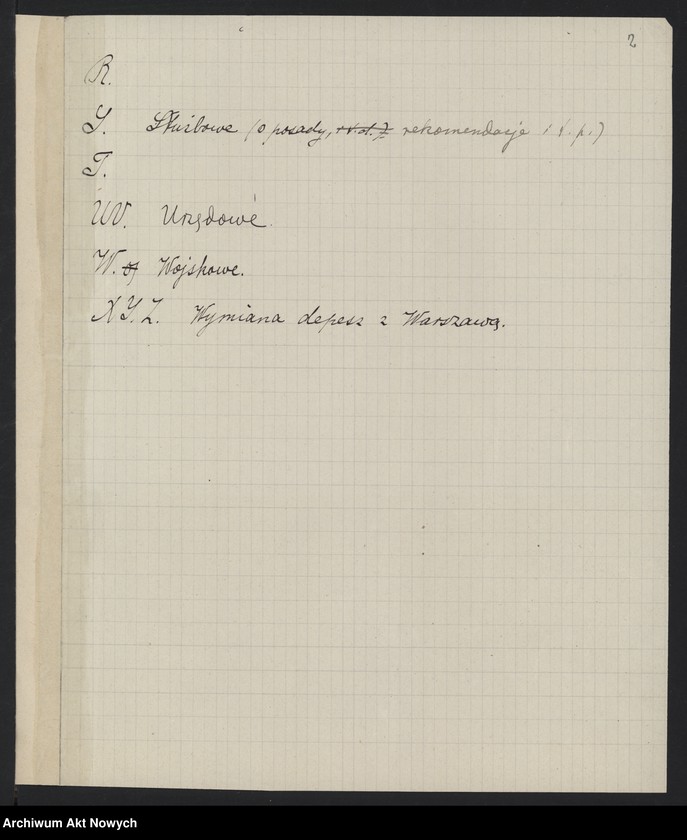 2
R.
S. Służbowe (o posady, rekomendacje i t. p.)
T.
UV. Urzędowe.
W. Wojskowe.
X Y. Z. Wymiana depesz z Warszawą.
Archiwum Akt Nowych